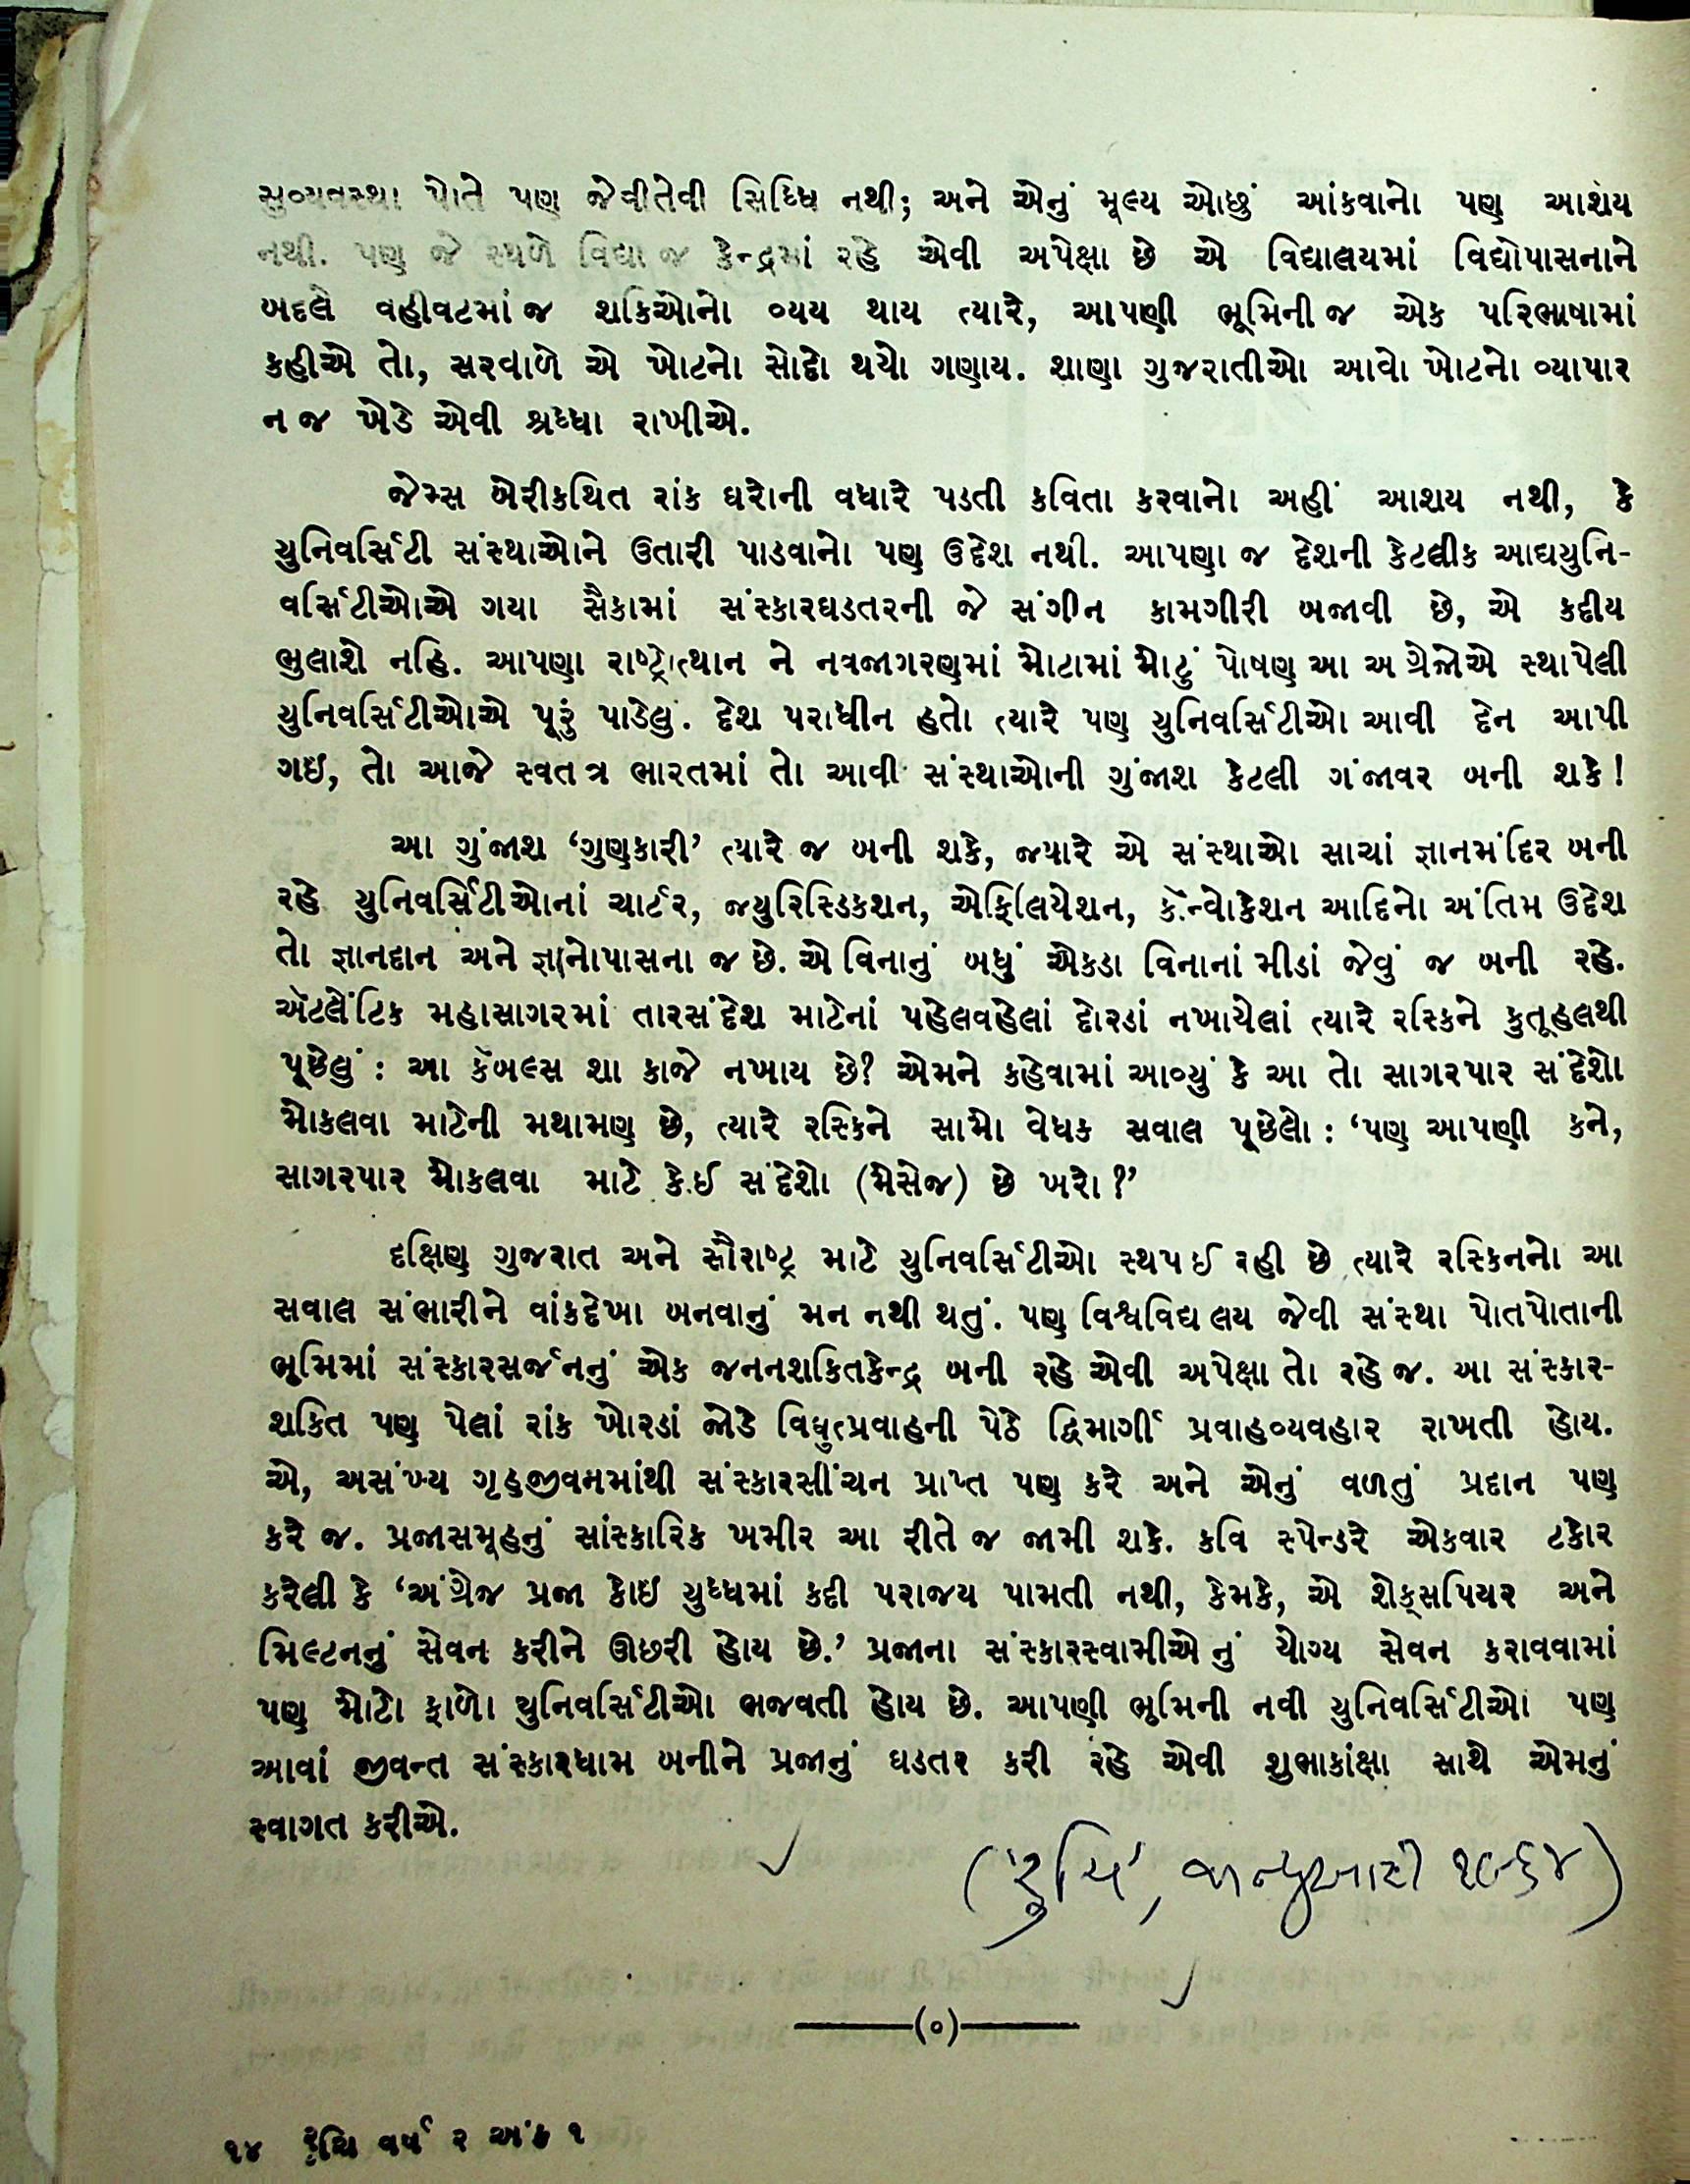 સુવ્યવસ્થા પોતે પણ જેવીતેવી સિધ્ધિ નથી; અને એનું મૂલ્ય ઓછું આંકવાનો પણ આશય
નથી. પણ જે સ્થળે વિદ્યા જ કેન્દ્રમાં રહે એવી અપેક્ષા છે એ વિદ્યાલયમાં વિદ્યોપાસનાને
બદલે વહીવટમાં જ શકિઓનો વ્યય થાય ત્યારે, આપણી ભૂમિની જ એક પરિભાષામાં
કહીએ તો, સરવાળે એ ખોટનો સોદો થયો ગણાય. શાણા ગુજરાતીઓ આવો ખોટનો વ્યાપાર
ન જ ખેડે એવી શ્રધ્ધા રાખીએ.
જેમ્સ બેરીકથિત રાંક ઘરોની વધારે પડતી કવિતા કરવાનો અહીં આશય નથી, કે
યુનિવર્સિટી સંસ્થાઓને ઉતારી પાડવાનો પણ ઉદ્દેશ નથી. આપણા જ દેશની કેટલીક આદ્યયુનિ-
વર્સિટીઓએ ગયા સૈકામાં સંસ્કારઘડતરની જે સંગીન કામગીરી બજાવી છે, એ કદીય
ભુલાશે નહિ. આપણા રાષ્ટ્રોત્થાન ને નવજાગરણમાં મોટામાં મોટું પોષણ આ અગ્રેજોએ સ્થાપેલી
યુનિવર્સિટીઓએ પૂરું પાડેલુ. દેશ પરાધીન હતો ત્યારે પણ યુનિવર્સિટીઓ આવી દેન આપી
ગઇ, તો આજે સ્વતત્ર ભારતમાં તો આવી સંસ્થાઓની ગુંજાશ કેટલી ગંજાવર બની શકે!
આ ગુંજાશ ‘ગુણકારી’ ત્યારે જ બની શકે, જ્યારે એ સંસ્થાઓ સાચાં જ્ઞાનમંદિર બની
રહે યુનિવર્સિટીઓનાં ચાર્ટર, જ્યુરિસ્ડિકશન, એફિલિયેશન, કૉન્વોકેશન આદિનો અંતિમ ઉદ્દેશ
તો જ્ઞાનદાન અને જ્ઞાનોપાસના જ છે. એ વિનાનું બધું એકડા વિનાનાં મીડાં જેવું જ બની રહે.
ઍટલૅંટિક મહાસાગરમાં તારસંદેશ માટેનાં પહેલવહેલાં દોરડાં નખાયેલાં ત્યારે રસ્કિને કુતૂહલથી
પૂછેલું : આ કૅબલ્સ શા કાજે નખાય છે? એમને કહેવામાં આવ્યું કે આ તો સાગરપાર સંદેશો
મોકલવા માટેની મથામણ છે, ત્યારે રસ્કિને સામો વેધક સવાલ પૂછેલો : ‘પણ આપણી કને,
સાગરપાર મોકલવા માટે કોઈ સંદેશો (મેસેજ) છે ખરો?’
દક્ષિણ ગુજરાત અને સૌરાષ્ટ્ર માટે યુનિવર્સિટીઓ સ્થપાઈ રહી છે ત્યારે રસ્કિનનો આ
સવાલ સંભારીને વાંકદેખા બનવાનું મન નથી થતું. પણ વિશ્વવિદ્ય લય જેવી સંસ્થા પોતપોતાની
ભૂમિમાં સંસ્કારસર્જનનું એક જનનશકિતકેન્દ્ર બની રહે એવી અપેક્ષા તો રહે જ. આ સંસ્કાર-
શકિત પણ પેલાં રાંક ખોરડાં જોડે વિધુત્પ્રવાહની પેઠે દ્વિમાર્ગી પ્રવાહવ્યવહાર રાખતી હોય.
એ, અસંખ્ય ગૃહજીવનમાંથી સંસ્કારસીંચન પ્રાપ્ત પણ કરે અને એનું વળતું પ્રદાન પણ
કરે જ. પ્રજાસમૂહનું સાંસ્કારિક ખમીર આ રીતે જ જામી શકે. કવિ સ્પેન્ડરે એકવાર ટકોર
કરેલી કે ‘અંગ્રેજ પ્રજા કોઇ યુધ્ધમાં કદી પરાજય પામતી નથી, કેમકે, એ શેક્સપિયર અને
મિલ્ટનનું સેવન કરીને ઊછરી હોય છે.’ પ્રજાના સંસ્કારસ્વામીએ નું યોગ્ય સેવન કરાવવામાં
પણ મોટો ફાળો યુનિવર્સિટીઓ ભજવતી હોય છે. આપણી ભૂમિની નવી યુનિવર્સિટીઓ પણ
આવાં જીવન્ત સંસ્કારધામ બનીને પ્રજાનું ઘડતર કરી રહે એવી શુભાકાંક્ષા સાથે એમનું
સ્વાગત કરીએ.
(‘રુચિ’, જાન્યુઆરી ૧૯૬૪)
(૦)
૧૪ રુચિ વર્ષ ૨ અંક ૧